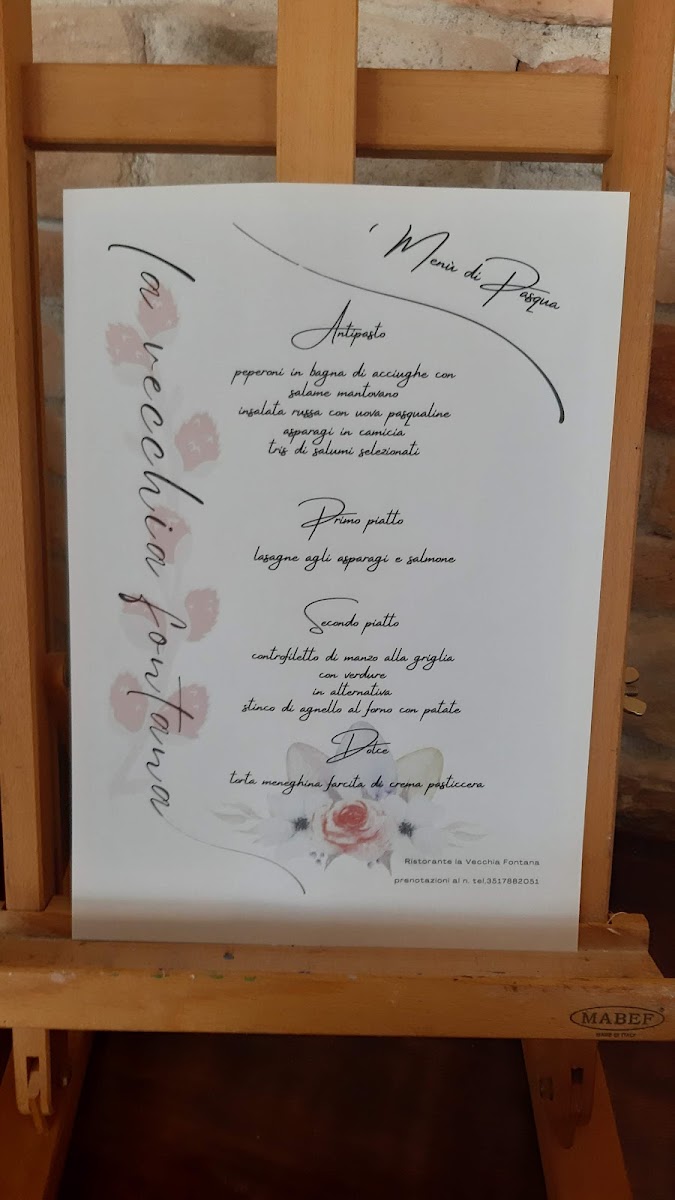 la vecchia fontana
Menù di Pasqua
Antipasto
peperoni in bagna di acciughe con
salame mantovano
insalata russa con uova pasqualine
asparagi in camicia
tris di salumi selezionati
Primo piatto
lasagne agli asparagi e salmone
Secondo piatto
controfiletto di manzo alla griglia
con verdure
in alternativa
stinco di agnello al forno con patate
Dolce
torta meneghina farcita di crema pasticcera
Ristorante la Vecchia Fontana
prenotazioni al n. tel.3517882051
MABEF
MADE IN ITALY